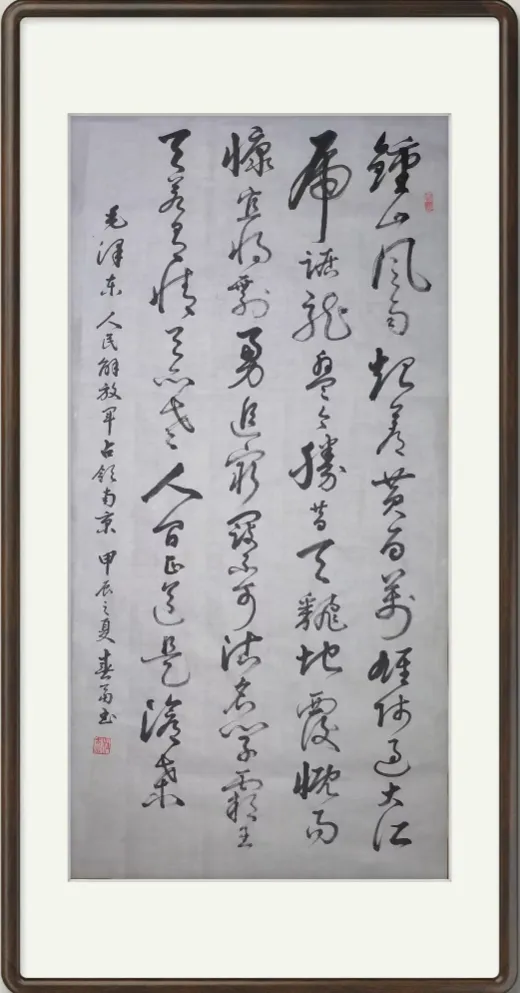 鍾山風雨起蒼黃百萬雄师过大江
虎踞龍盤今勝昔天翻地覆慨而
慷宜将剩勇追窮寇不可沽名学霸王
天若有情天亦老人间正道是滄桑
毛泽东 人民解放军占领南京 甲辰之夏 春富书